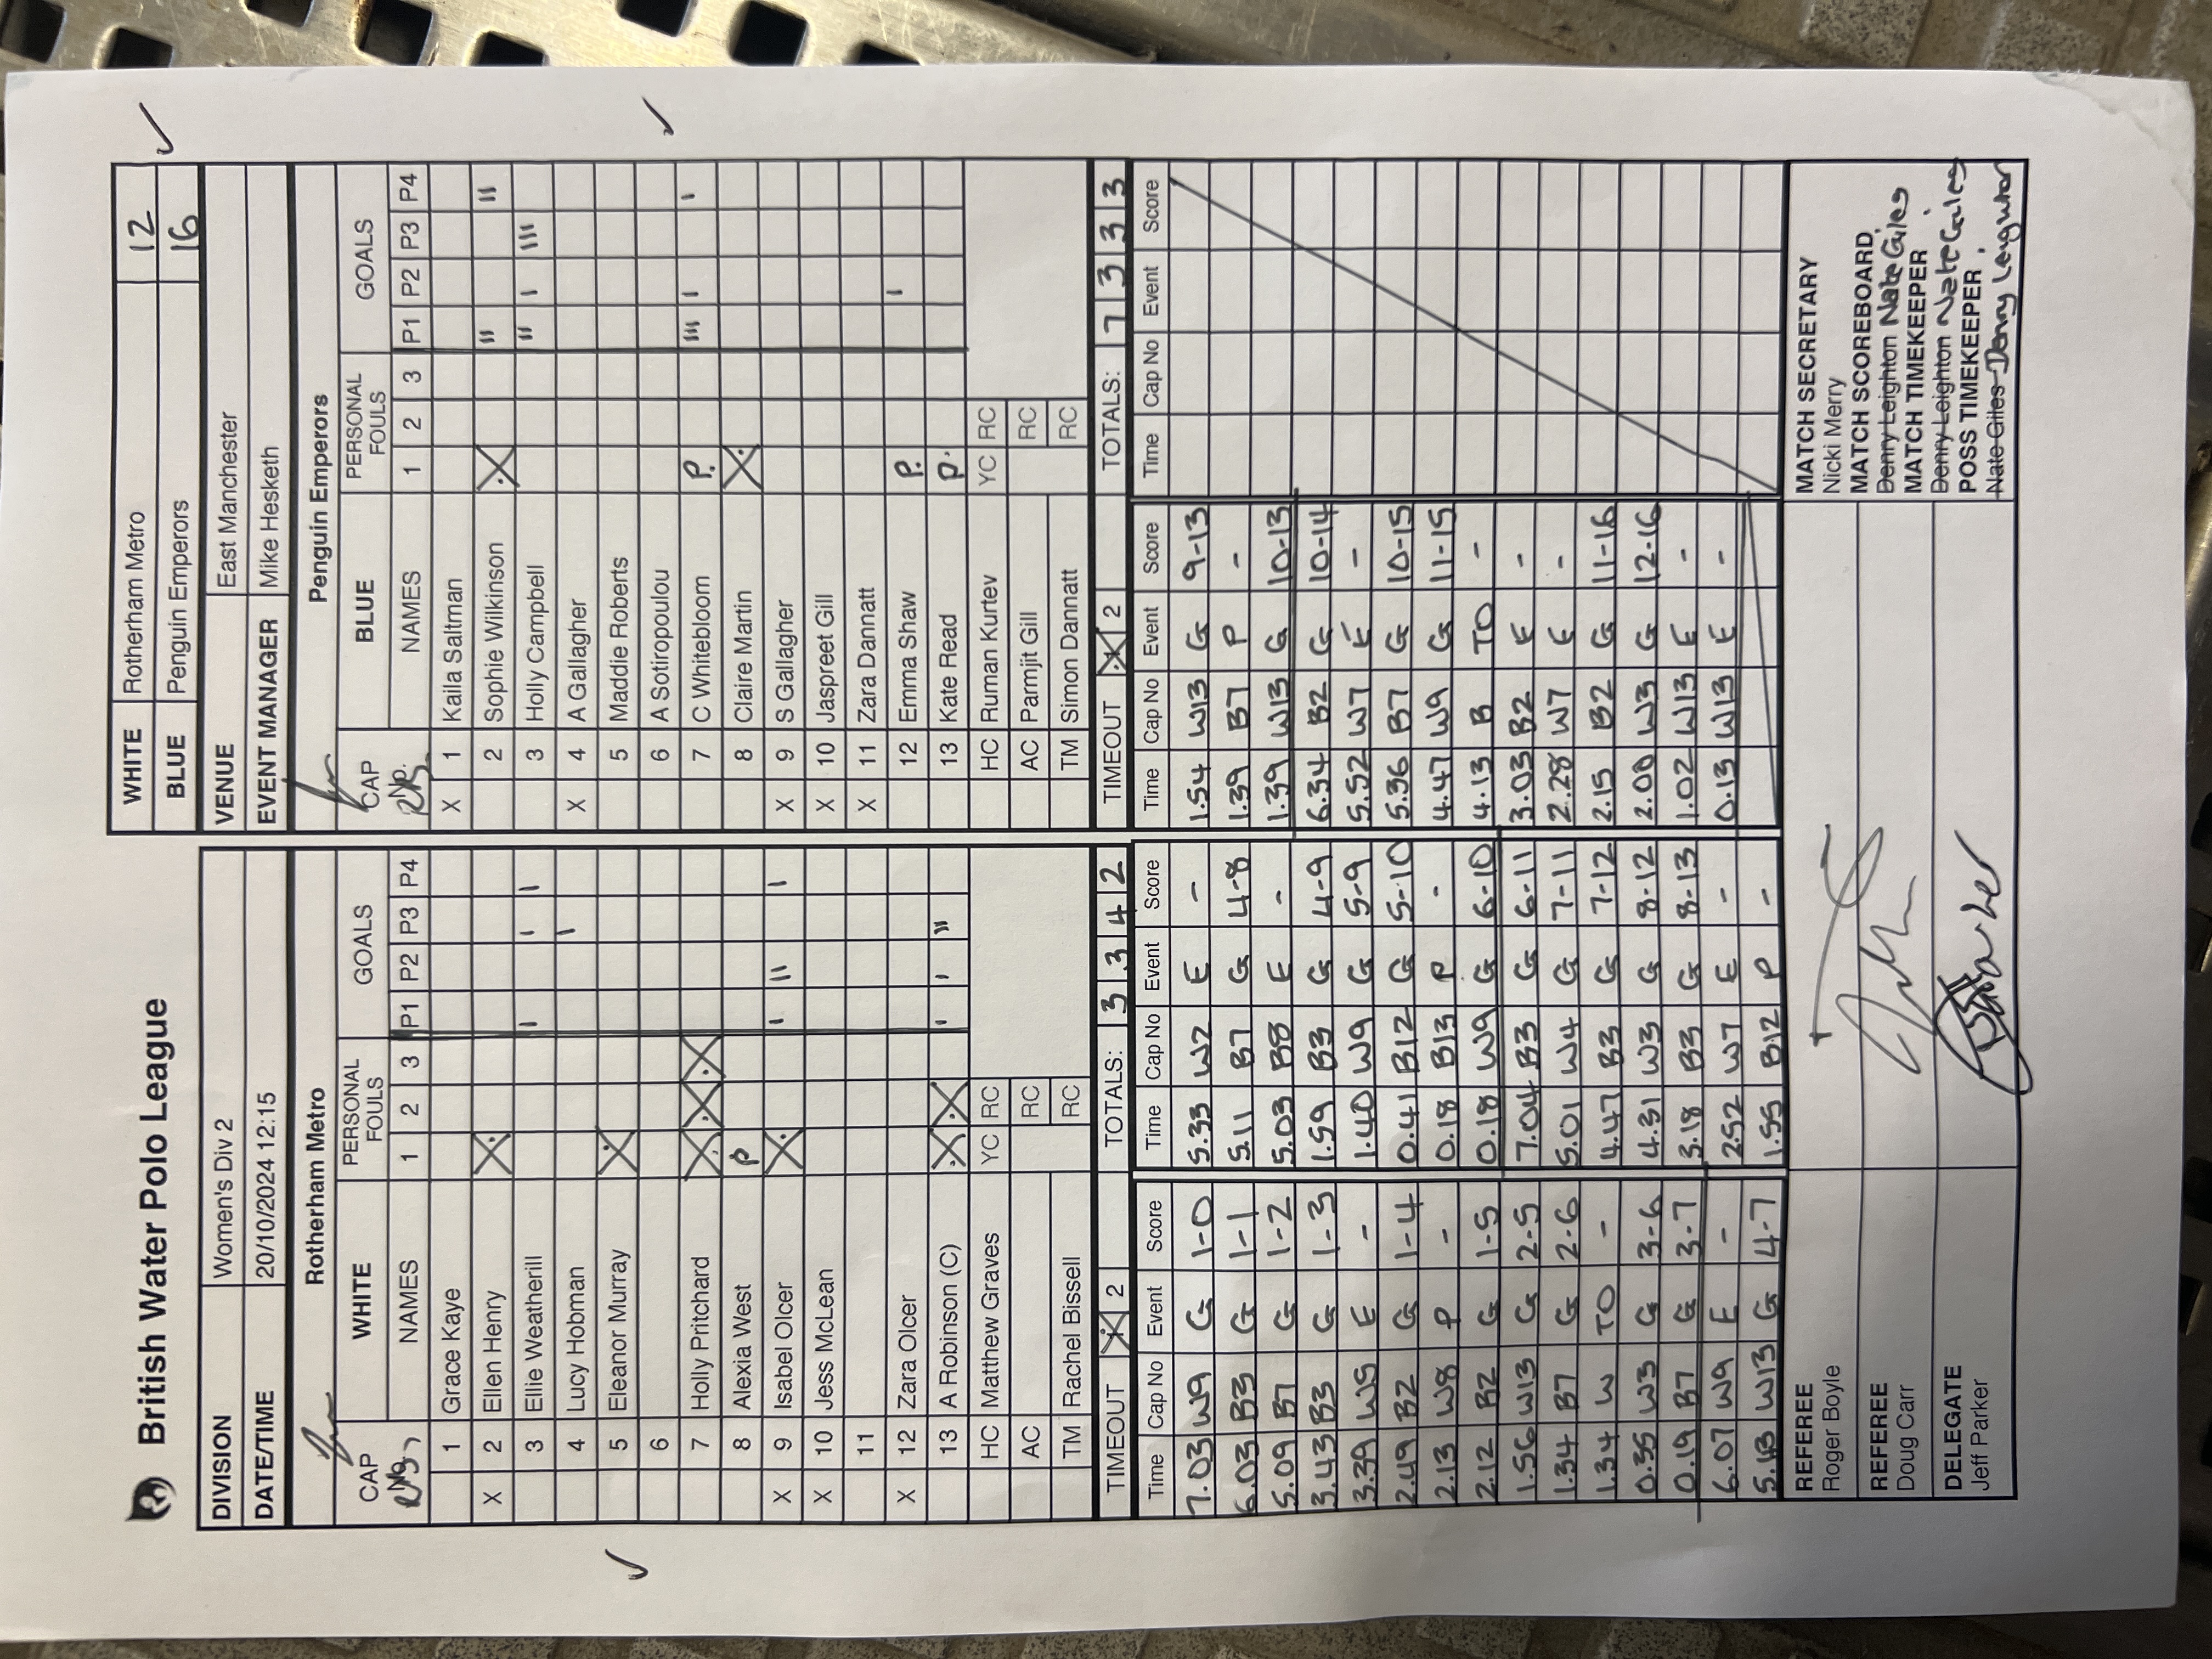 British Water Polo League
DIVISION Women's Div 2
DATE/TIME 20/10/2024 12:15
WHITE Rotherham Metro 12
BLUE Penguin Emperors 16
VENUE East Manchester
EVENT MANAGER Mike Hesketh
Rotherham Metro
CAP No. WHITE PERSONAL FOULS GOALS
NAMES 1 2 3 P1 P2 P3 P4
1 Grace Kaye
X 2 Ellen Henry X
3 Ellie Weatherill I I I
4 Lucy Hobman I
5 Eleanor Murray X
6
7 Holly Pritchard X X X
8 Alexia West P
X 9 Isabel Olcer X I II I
X 10 Jess McLean
11
X 12 Zara Olcer
13 A Robinson (C) X X I I II
HC Matthew Graves YC RC
AC RC
TM Rachel Bissell RC
TIMEOUT 1 2 TOTALS: 3 3 4 2
Penguin Emperors
CAP No. BLUE PERSONAL FOULS GOALS
NAMES 1 2 3 P1 P2 P3 P4
X 1 Kaila Saltman
2 Sophie Wilkinson X II II
3 Holly Campbell II I III
X 4 A Gallagher
5 Maddie Roberts
6 A Sotiropoulou
7 C Whitebloom P. III I I
8 Claire Martin X
X 9 S Gallagher
X 10 Jaspreet Gill
X 11 Zara Dannatt
12 Emma Shaw P. I
13 Kate Read P.
HC Ruman Kurtev YC RC
AC Parmjit Gill RC
TM Simon Dannatt RC
TIMEOUT 1 2 TOTALS: 7 3 3 3
Time Cap No Event Score
7.03 W9 G 1-0
6.03 B3 G 1-1
5.09 B7 G 1-2
3.43 B3 G 1-3
3.39 W5 E -
2.49 B2 G 1-4
2.13 W8 P -
2.12 B2 G 1-5
1.56 W13 G 2-5
1.34 B7 G 2-6
1.34 W TO -
0.35 W3 G 3-6
0.19 B7 G 3-7
6.07 W9 E -
5.43 W13 G 4-7
Time Cap No Event Score
5.33 W2 E -
5.11 B7 G 4-8
5.03 B8 E -
1.59 B3 G 4-9
1.40 W9 G 5-9
0.41 B12 G 5-10
0.18 B13 P -
0.18 W9 G 6-10
7.04 B3 G 6-11
5.01 W4 G 7-11
4.47 B3 G 7-12
4.31 W3 G 8-12
3.18 B3 G 8-13
2.52 W7 E -
1.55 B12 P -
Time Cap No Event Score
1.54 W13 G 9-13
1.39 B7 P -
1.39 W13 G 10-13
6.34 B2 G 10-14
5.52 W7 E -
5.36 B7 G 10-15
4.47 W9 G 11-15
4.13 B TO -
3.03 B2 E -
2.28 W7 E -
2.15 B2 G 11-16
2.00 W3 G 12-16
1.02 W13 E -
0.13 W13 E -
Time Cap No Event Score
REFEREE
Roger Boyle
REFEREE
Doug Carr
DELEGATE
Jeff Parker
MATCH SECRETARY
Nicki Merry
MATCH SCOREBOARD
Denny Leighton Nate Giles
MATCH TIMEKEEPER
Denny Leighton Nate Giles
POSS TIMEKEEPER
Nate Giles Denny Leighton